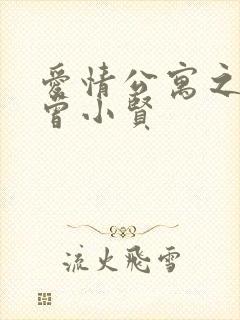 愛情公寓之
曾小賢
流火飛雪